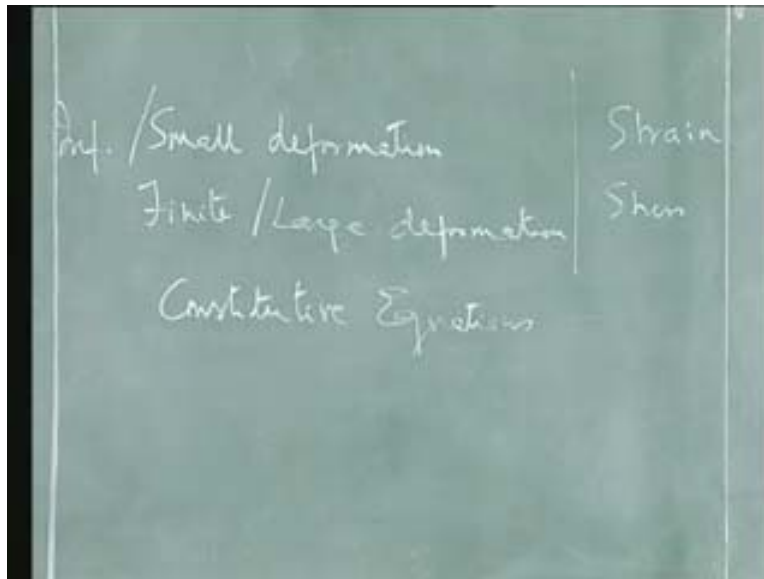 /Small deformation
Finite /Large deformation
Constitutive Equations
Strain